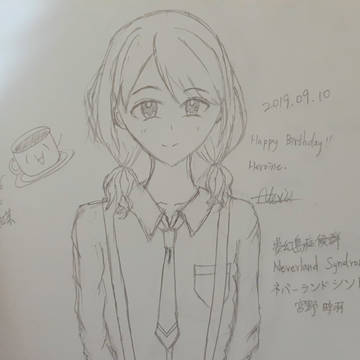 2019.09.10
Happy Birthday!!
Heroine.
夢幻島症候群
Neverland Syndro
ネバーランドシンド
宮野 時羽